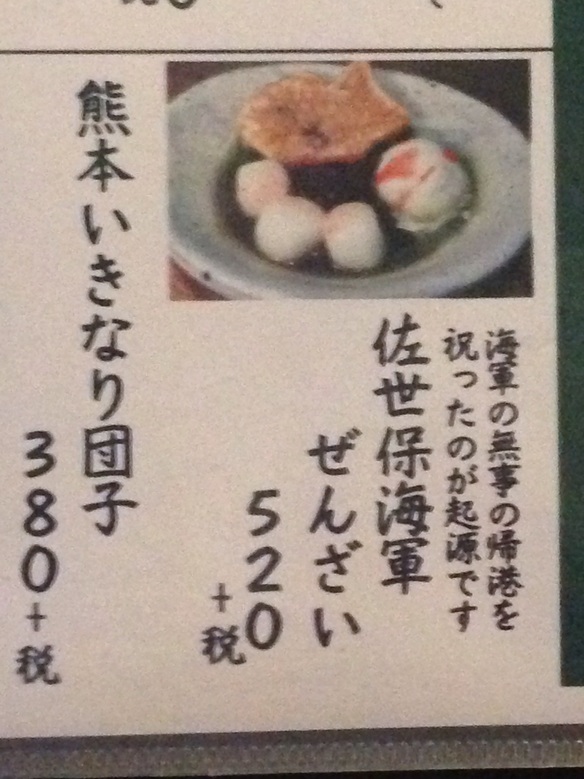 海軍の無事の帰港を
祝ったのが起源です
佐世保海軍
ぜんざい
520
+税
熊本いきなり団子
380+税